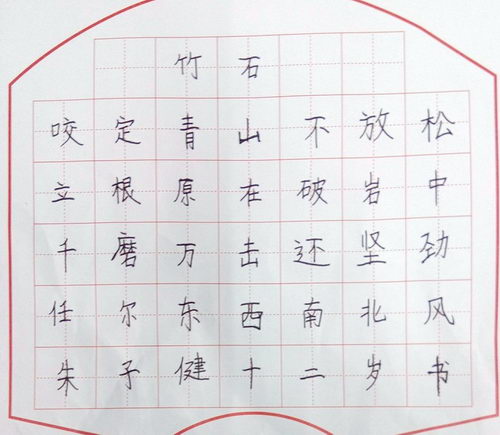 竹石
咬定青山不放松
立根原在破岩中
千磨万击还坚劲
任尔东西南北风
朱子健十二岁书